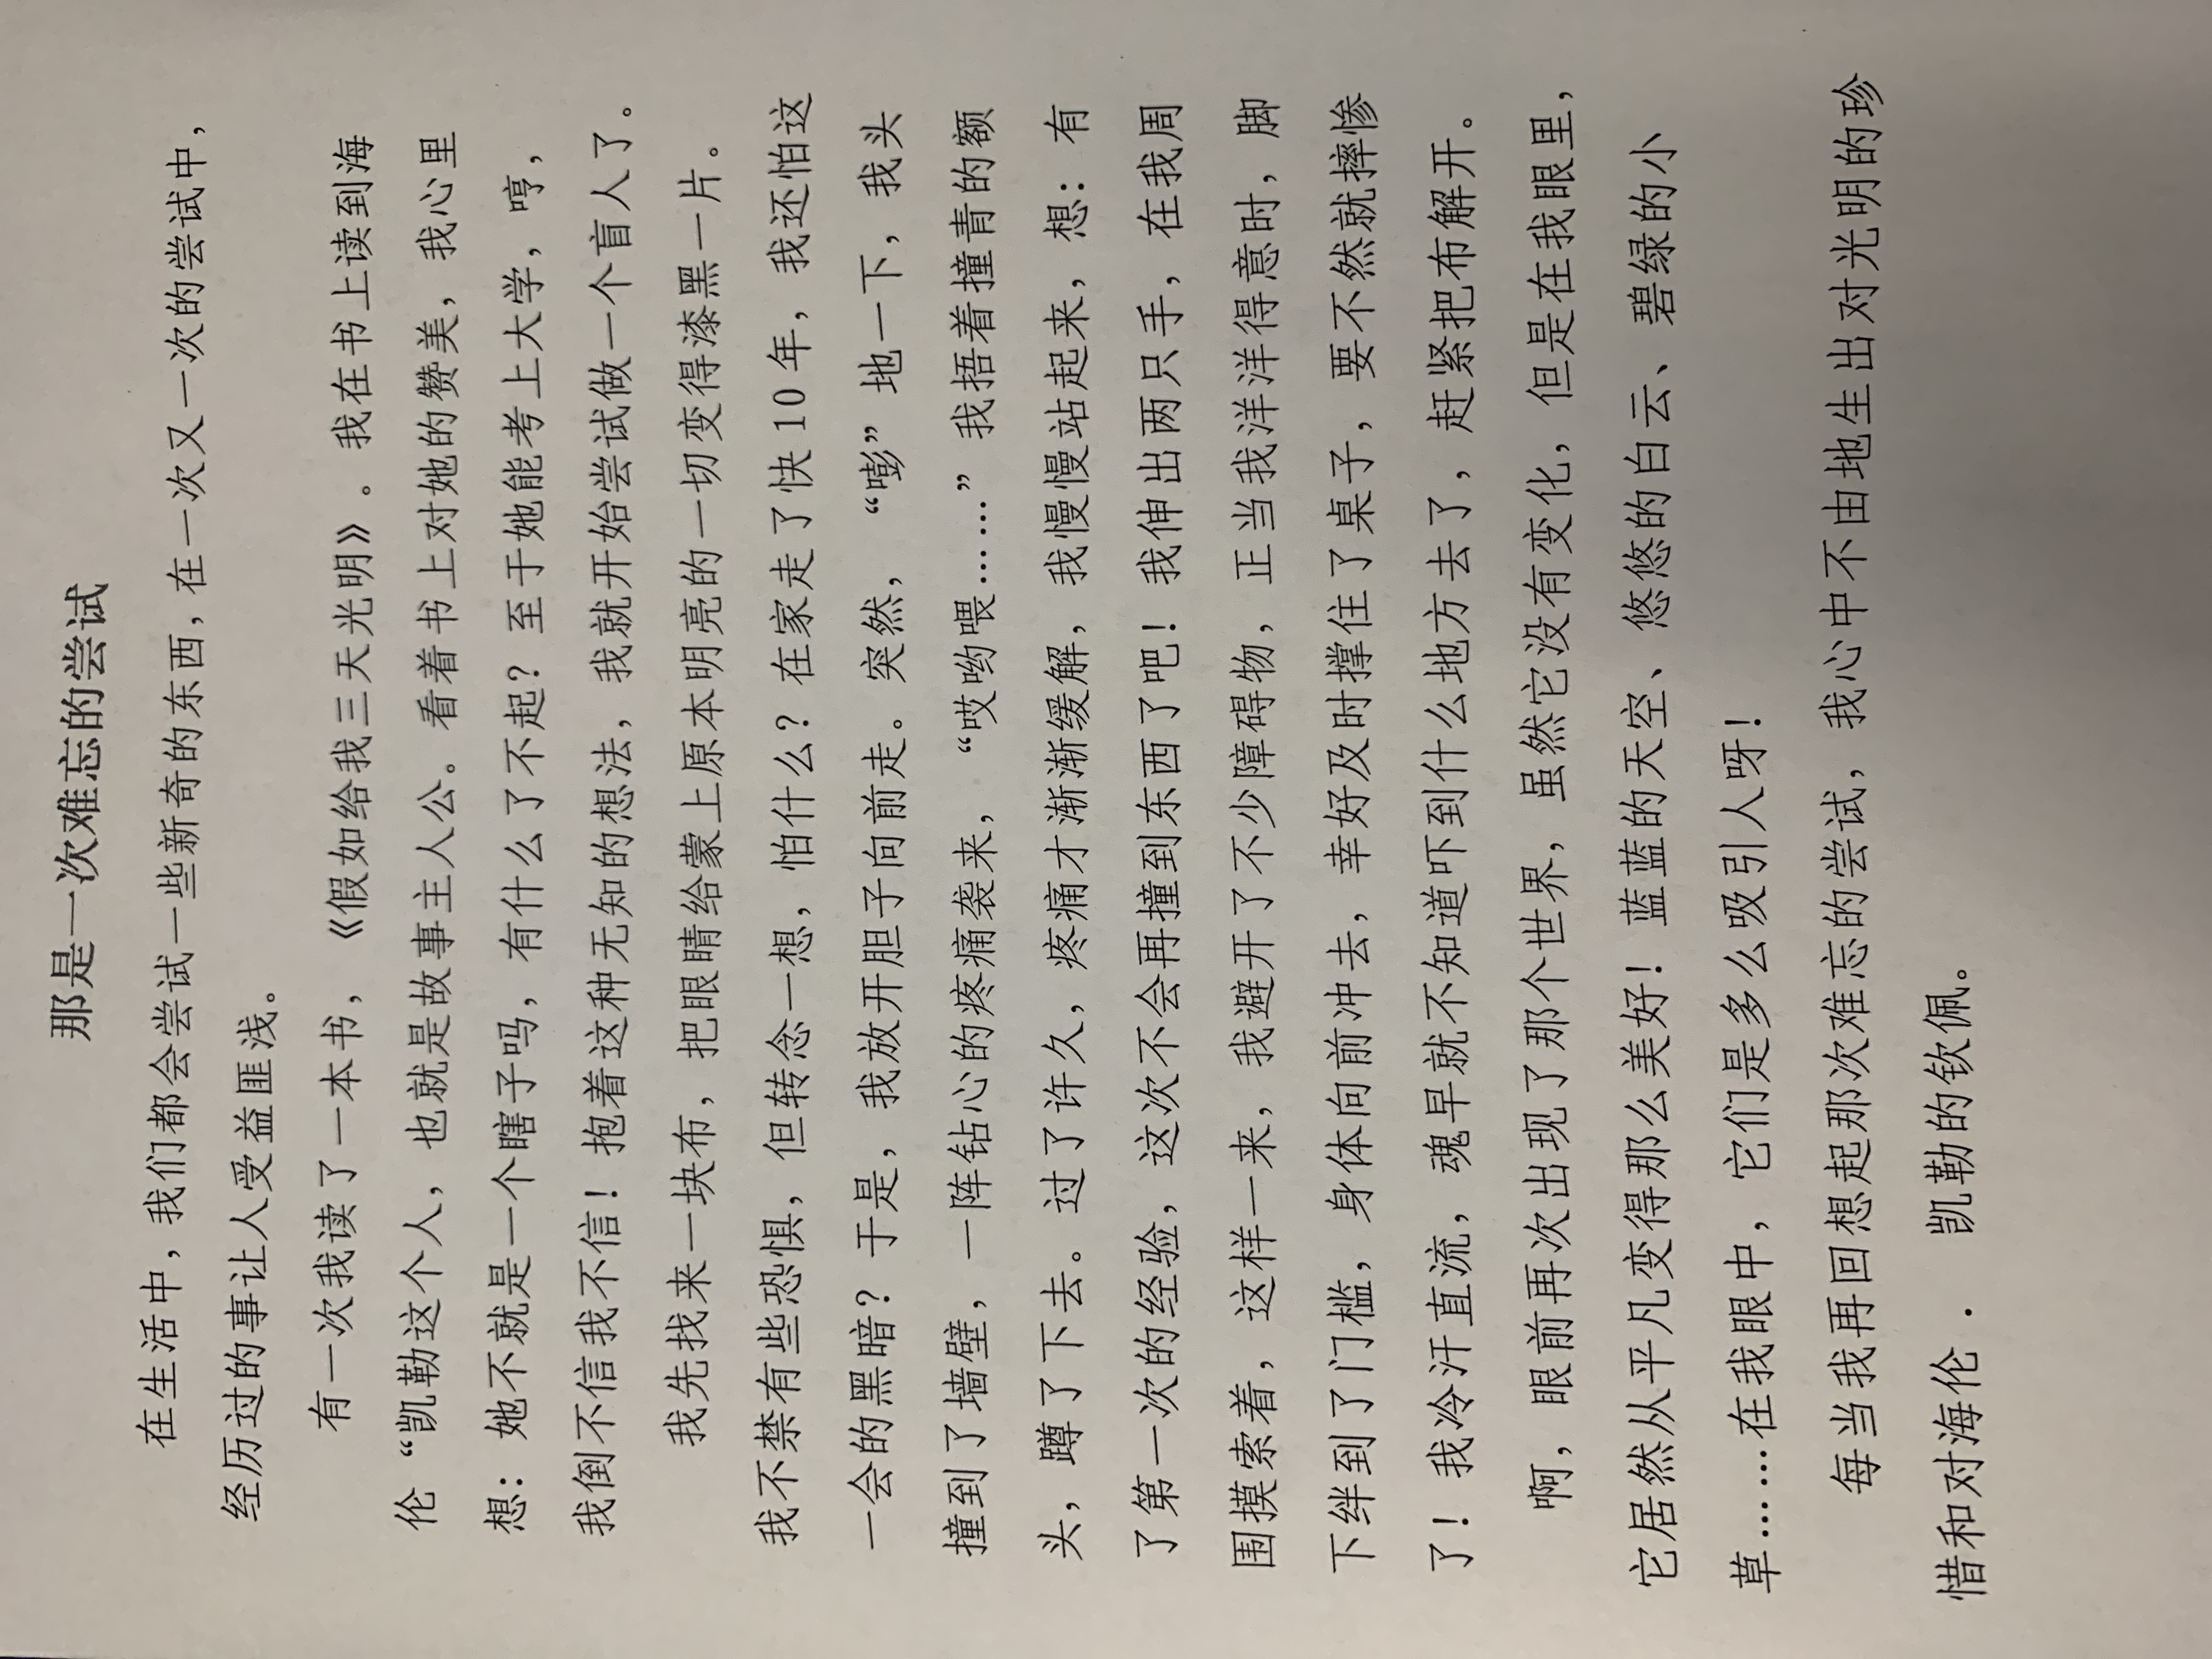 那是一次难忘的尝试
在生活中，我们都会尝试一些新奇的东西，在一次又一次的尝试中，
经历过的事让人受益匪浅。
有一次我读了一本书，《假如给我三天光明》。我在书上读到海
伦“凯勒这个人，也就是故事主人公。看着书上对她的赞美，我心里
想：她不就是一个瞎子吗，有什么了不起？至于她能考上大学，哼，
我倒不信我不信！抱着这种无知的想法，我就开始尝试做一个盲人了。
我先找来一块布，把眼睛给蒙上原本明亮的一切变得漆黑一片。
我不禁有些恐惧，但转念一想，怕什么？在家走了快10年，我还怕这
一会的黑暗？于是，我放开胆子向前走。突然，“嘭”地一下，我头
撞到了墙壁，一阵钻心的疼痛袭来，“哎哟喂……”我捂着撞青的额
头，蹲了下去。过了许久，疼痛才渐渐缓解，我慢慢站起来，想：有
了第一次的经验，这次不会再撞到东西了吧！我伸出两只手，在我周
围摸索着，这样一来，我避开了不少障碍物，正当我洋洋得意时，脚
下绊到了门槛，身体向前冲去，幸好及时撑住了桌子，要不然就摔惨
了！我冷汗直流，魂早就不知道吓到什么地方去了，赶紧把布解开。
啊，眼前再次出现了那个世界，虽然它没有变化，但是在我眼里，
它居然从平凡变得那么美好！蓝蓝的天空、悠悠的白云、碧绿的小
草……在我眼中，它们是多么吸引人呀！
每当我再回想起那次难忘的尝试，我心中不由地生出对光明的珍
惜和对海伦．凯勒的钦佩。